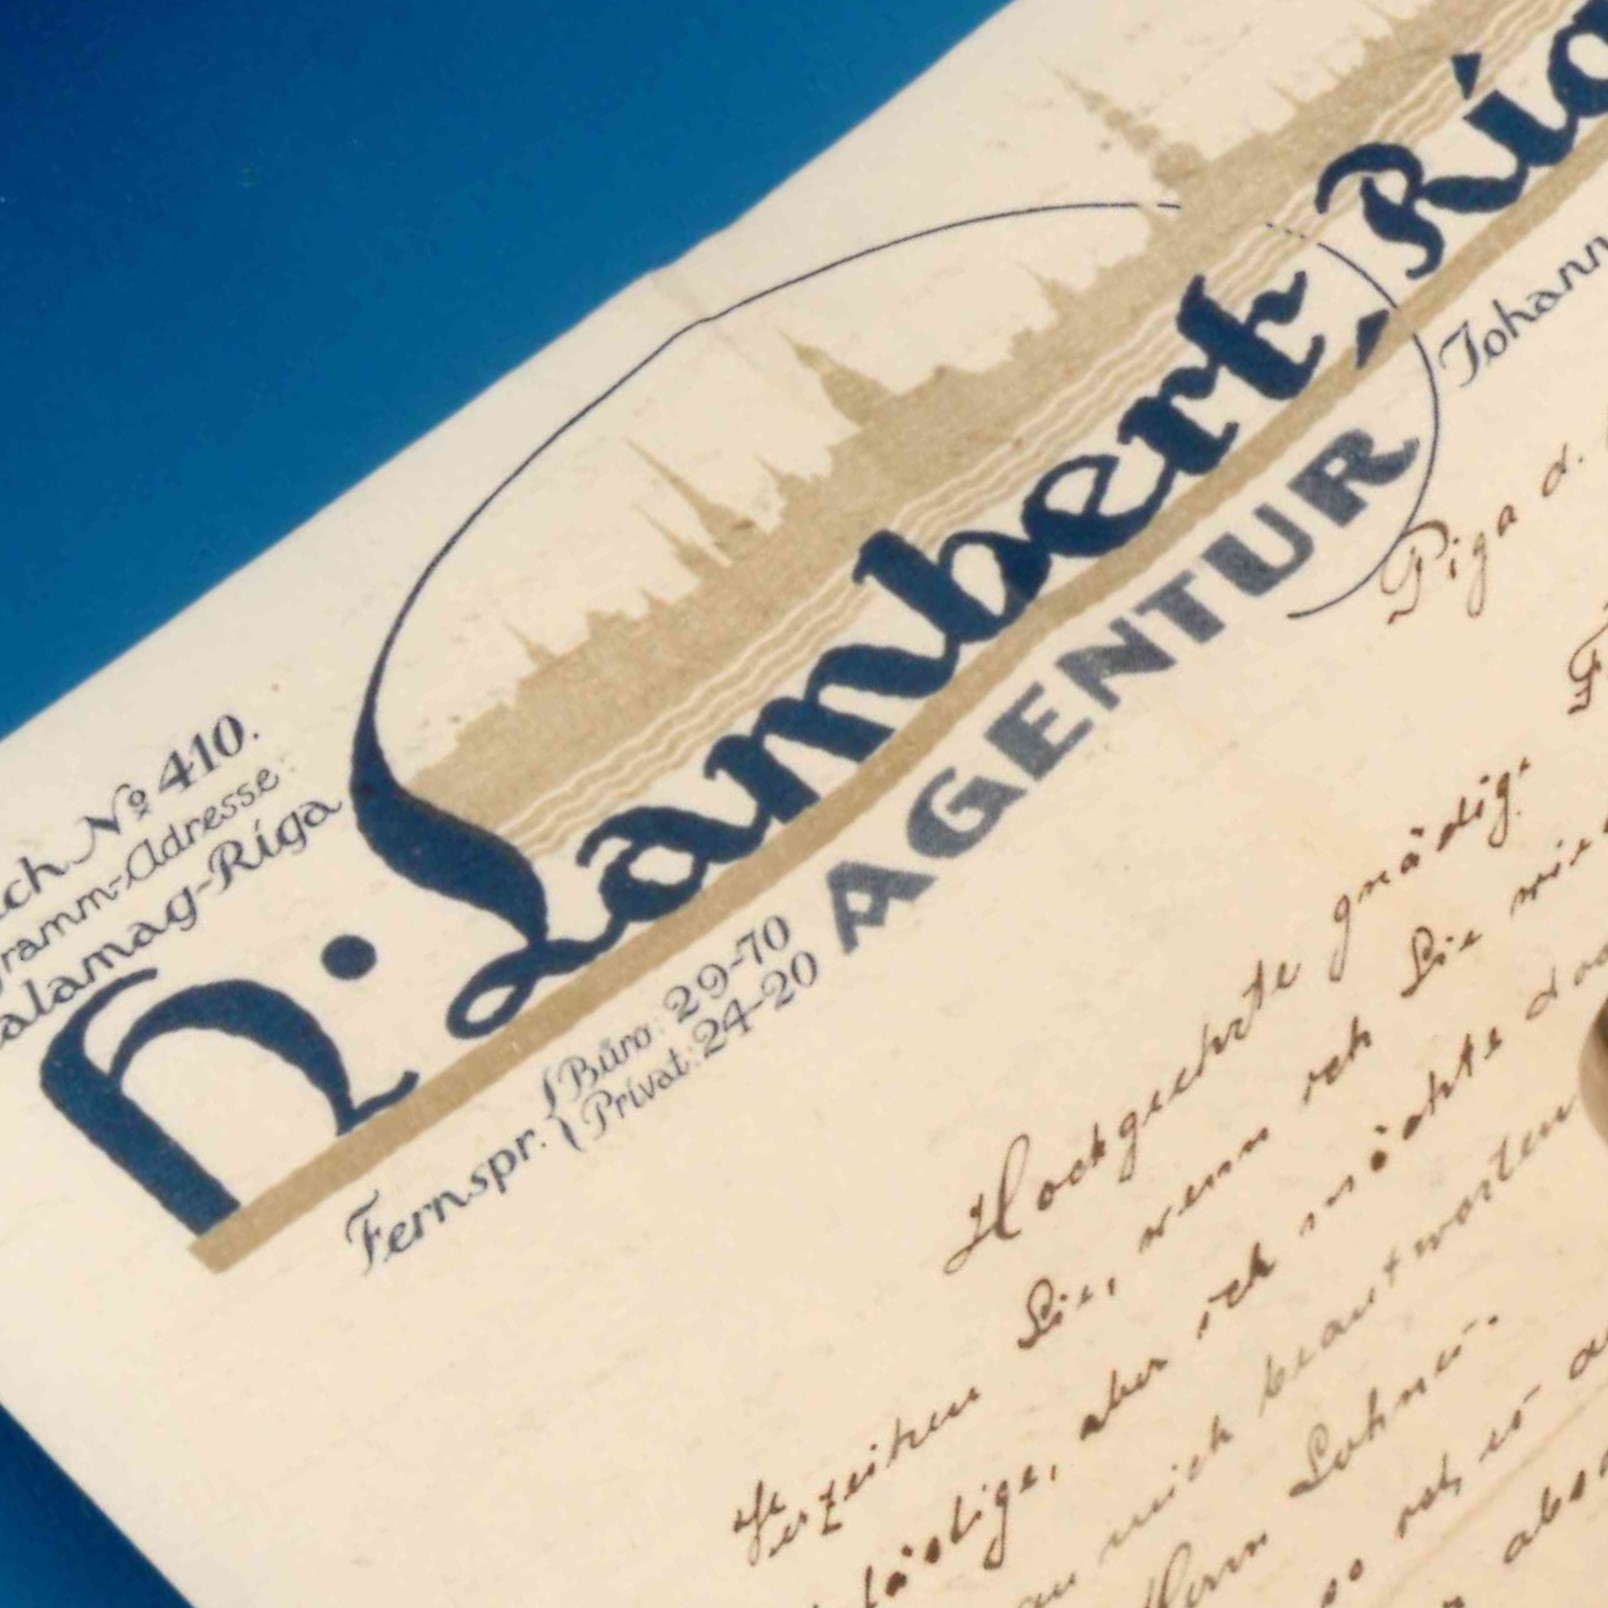 ch No 410.
ramm-Adresse:
alamag-Riga
h. Lambert, Rig
AGENTUR
Fernspr. { Büro: 29-70
Privat: 24-20
Johann
Riga d.
Hochgeehrte gnädige
Verzeihen Sie, wenn ich Sie wie
lästige, aber ich möchte doch
mich beantworten
Herrn Sohnes.
so rasch es